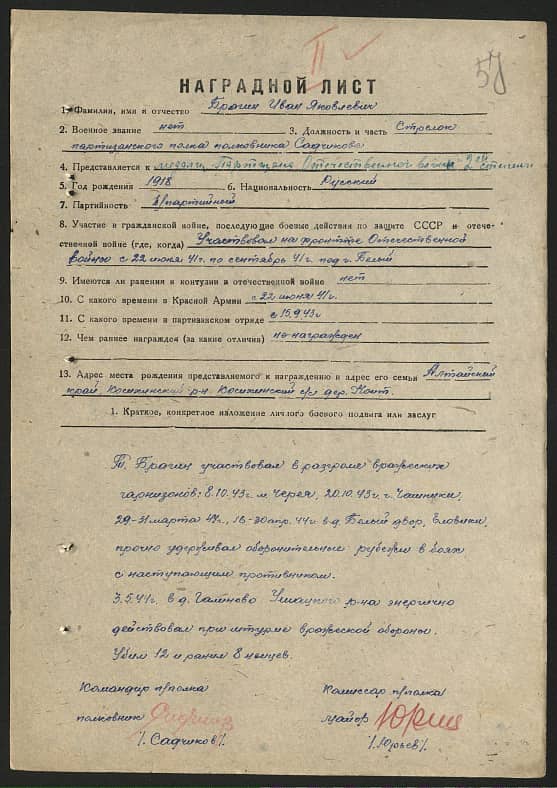 II
НАГРАДНОЙ ЛИСТ
1. Фамилия, имя и отчество Брагин Иван Яковлевич
2. Военное звание нет 3. Должность и часть Стрелок
партизанского полка полковника Садчикова
4. Представляется к медали Партизана Отечественной войны 2ой степени
5. Год рождения 1918 6. Национальность Русский
7. Партийность б/партийный
8. Участие в гражданской войне, последующие боевые действия по защите СССР и отече-
ственной войне (где, когда) Участвовал на фронтте Отечественной
войны с 22 июня 41г. по сентябрь 41г. под г. Белый
9. Имеются ли ранения и контузии в отечественной войне нет
10. С какого времени в Красной Армии с 22 июня 41г.
11. С какого времени в партизанском отряде с 15.9.43г
12. Чем раннее награжден (за какие отличия) не награжден
13. Адрес места рождения представляемого к награждению и адрес его семьи Алтайский
край, Косихинский р-н Косихинский с/с дер.
1. Краткое, конкретное изложение личного боевого подвига или заслуг
Т. Брагин участвовал в разгроме вражеских
гарнизонов: 8.10.43г. м. Черея, 20.10.43г. г. Чашники,
29-31 марта 44г., 16-30 апр. 44г в д. Белый двор, Еловики,
прочно удерживал оборонительные рубежи в боях
с наступающим противником.
3.5.44г. в д. Ушацкого р-на энергично
действовал при штурме вражеской обороны.
Убил 12 и ранил 8 немцев.
Командир п/полка Комиссар п/полка
полковник Садчиков майор Юрьев
/Садчиков/ /Юрьев/